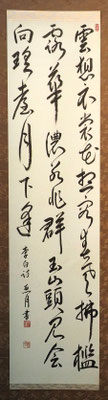 雲想衣裳花想容春風拂檻
露華濃若非群玉山頭見会
向瑶臺月下逢
李白詩 月書